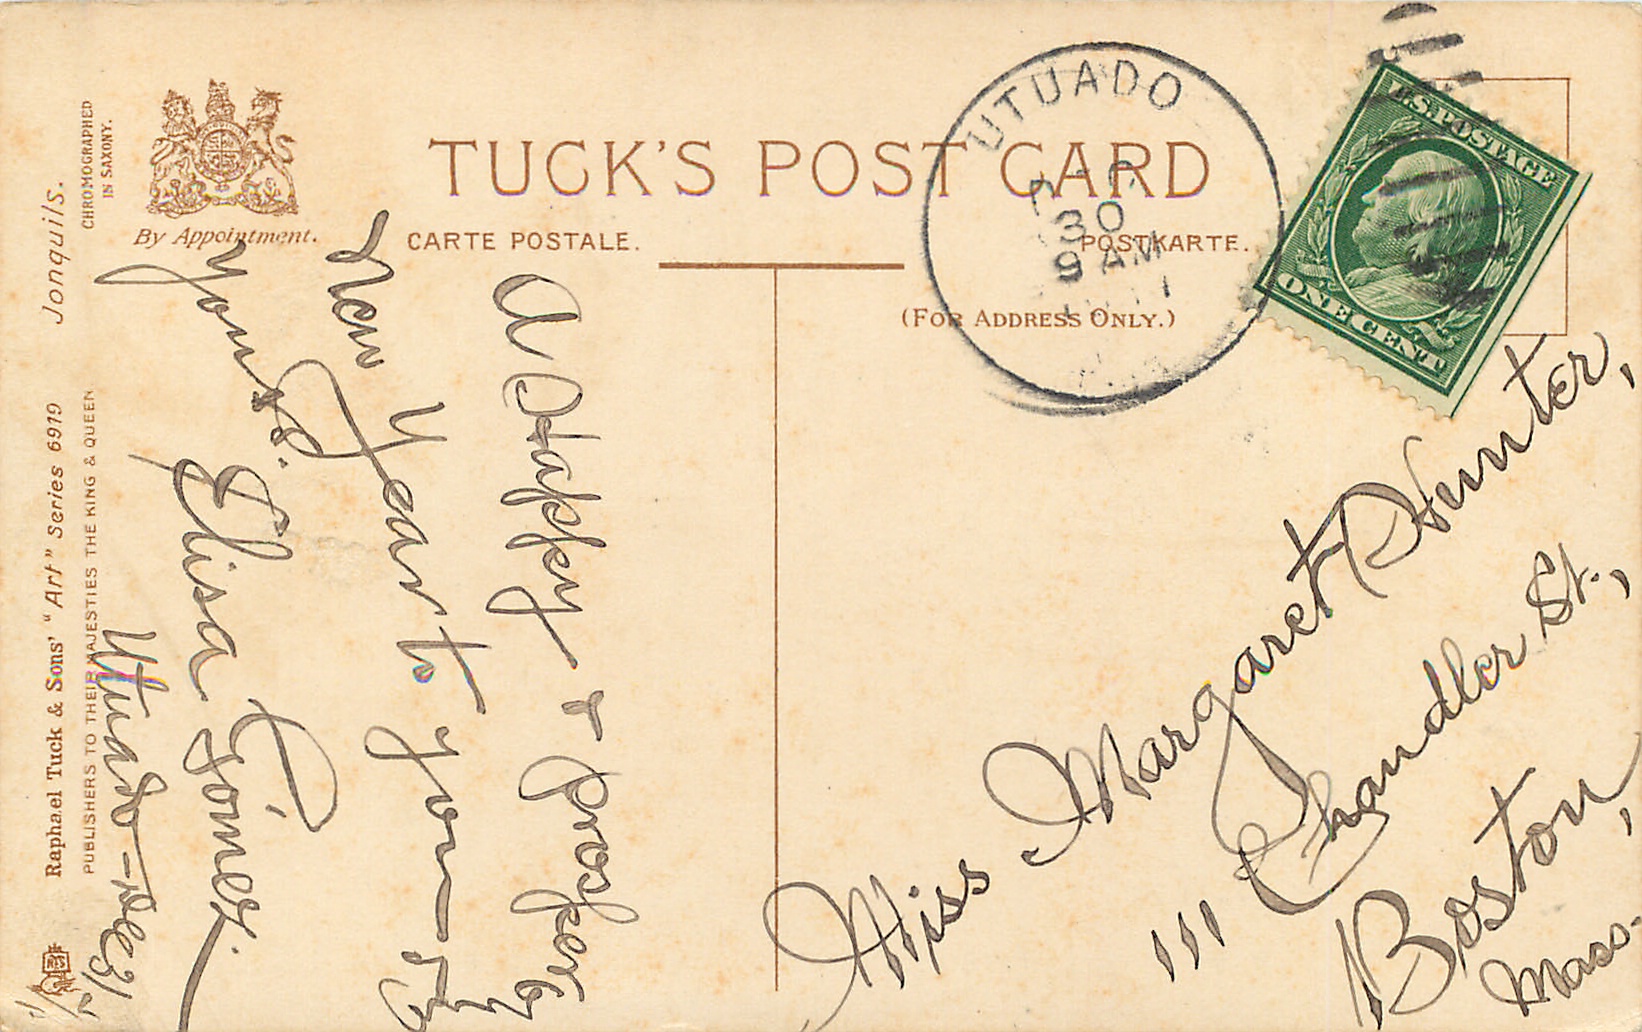 TUCK'S POST CARD
CARTE POSTALE.
POSTKARTE.
(FOR ADDRESS ONLY.)
By Appointment.
CHROMOGRAPHED
IN SAXONY.
Jonquils.
Raphael Tuck & Sons' "Art" Series 6919
PUBLISHERS TO THEIR MAJESTIES THE KING & QUEEN
UTUADO
30
9 AM
U.S. POSTAGE
ONE CENT
A Happy & Prosper
New Year to you—
Yours.
Elisa Gómez.
Utuado—Dec 31/
Miss Margaret Hunter,
111 Chandler St.,
Boston,
Mass.